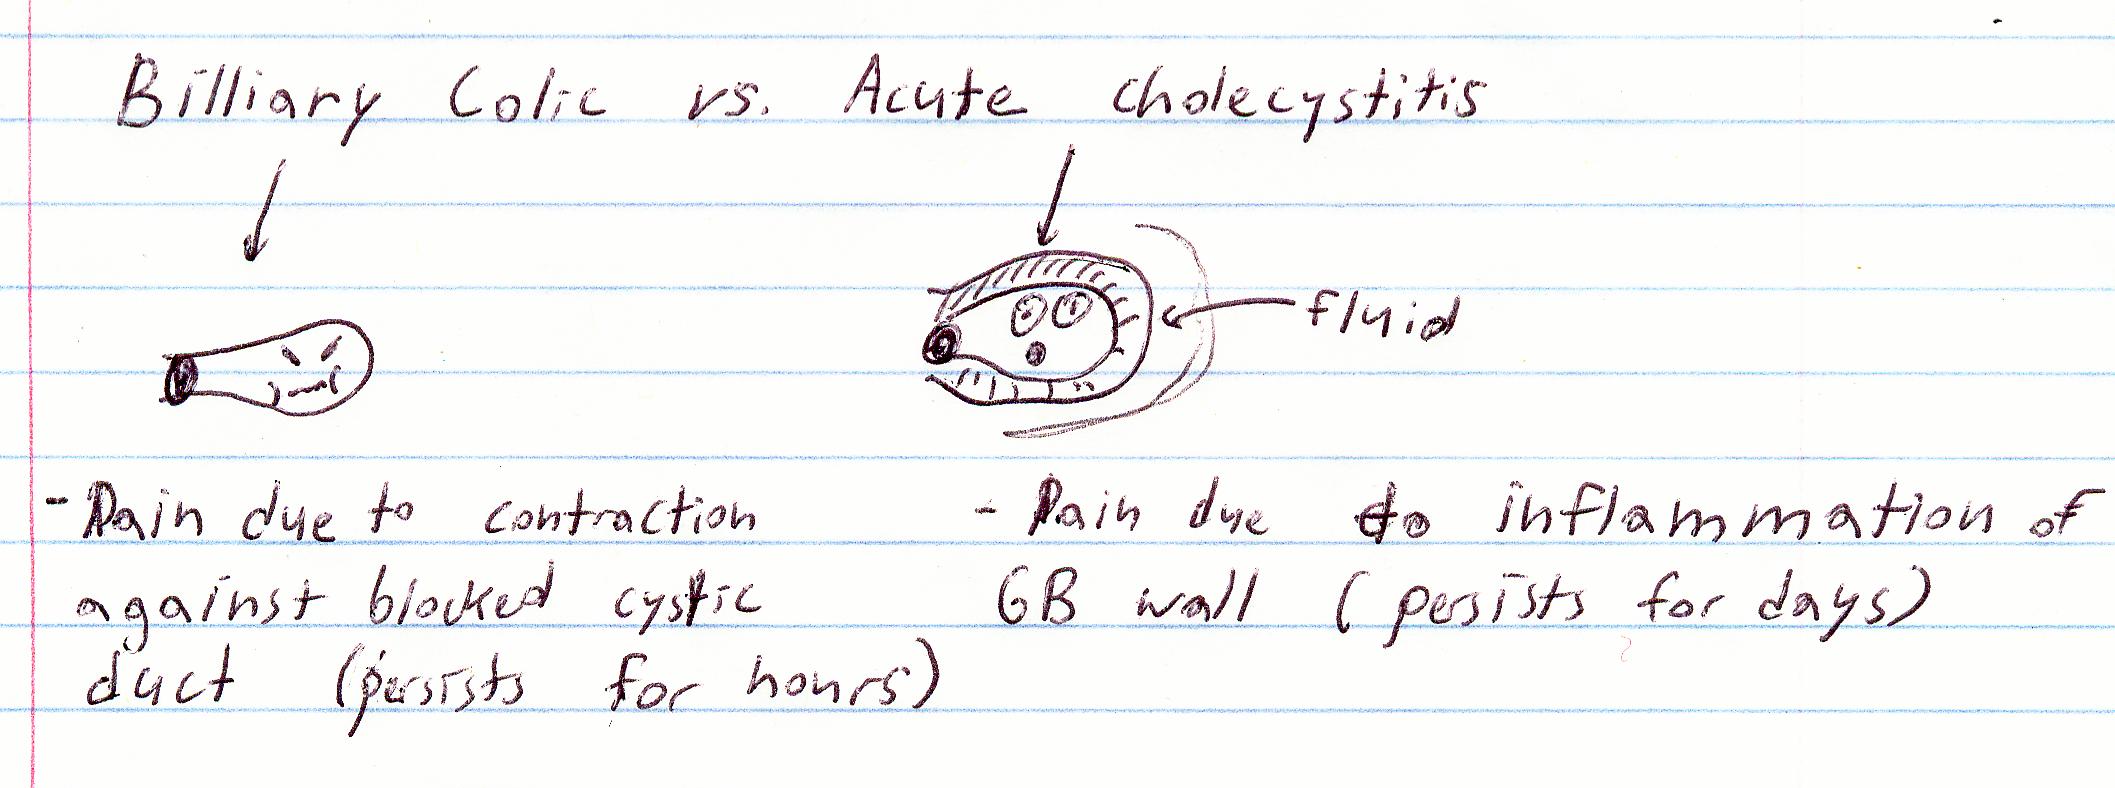 Billiary Colic vs. Acute cholecystitis
fluid
- Pain due to contraction
against blocked cystic
duct (persists for hours)
- Pain due to inflammation of
GB wall (persists for days)